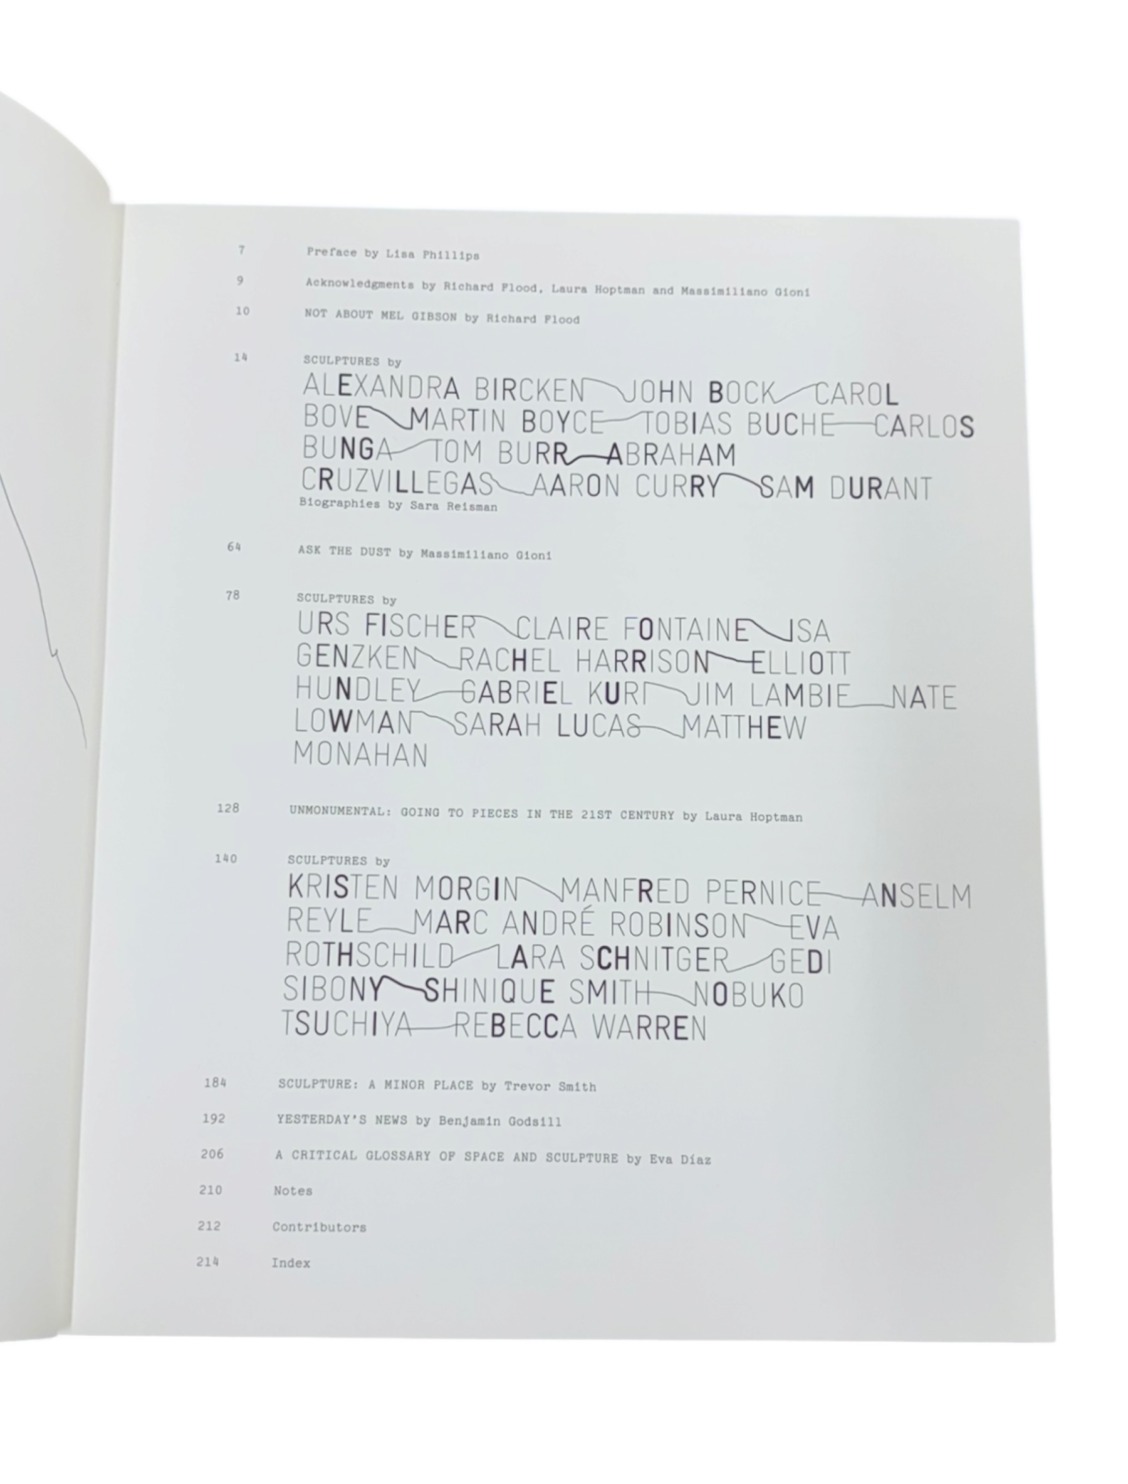 7 Preface by Lisa Phillips
9 Acknowledgments by Richard Flood, Laura Hoptman and Massimiliano Gioni
10 NOT ABOUT MEL GIBSON by Richard Flood
14 SCULPTURES by
ALEXANDRA BIRCKEN JOHN BOCK CAROL
BOVE MARTIN BOYCE TOBIAS BUCHE CARLOS
BUNGA TOM BURR ABRAHAM
CRUZVILLEGAS AARON CURRY SAM DURANT
Biographies by Sara Reisman
64 ASK THE DUST by Massimiliano Gioni
78 SCULPTURES by
URS FISCHER CLAIRE FONTAINE ISA
GENZKEN RACHEL HARRISON ELLIOTT
HUNDLEY GABRIEL KURI JIM LAMBIE NATE
LOWMAN SARAH LUCAS MATTHEW
MONAHAN
128 UNMONUMENTAL: GOING TO PIECES IN THE 21ST CENTURY by Laura Hoptman
140 SCULPTURES by
KRISTEN MORGIN MANFRED PERNICE ANSELM
REYLE MARC ANDRÉ ROBINSON EVA
ROTHSCHILD LARA SCHNITGER GEDI
SIBONY SHINIQUE SMITH NOBUKO
TSUCHIYA REBECCA WARREN
184 SCULPTURE: A MINOR PLACE by Trevor Smith
192 YESTERDAY'S NEWS by Benjamin Godsill
206 A CRITICAL GLOSSARY OF SPACE AND SCULPTURE by Eva Díaz
210 Notes
212 Contributors
214 Index